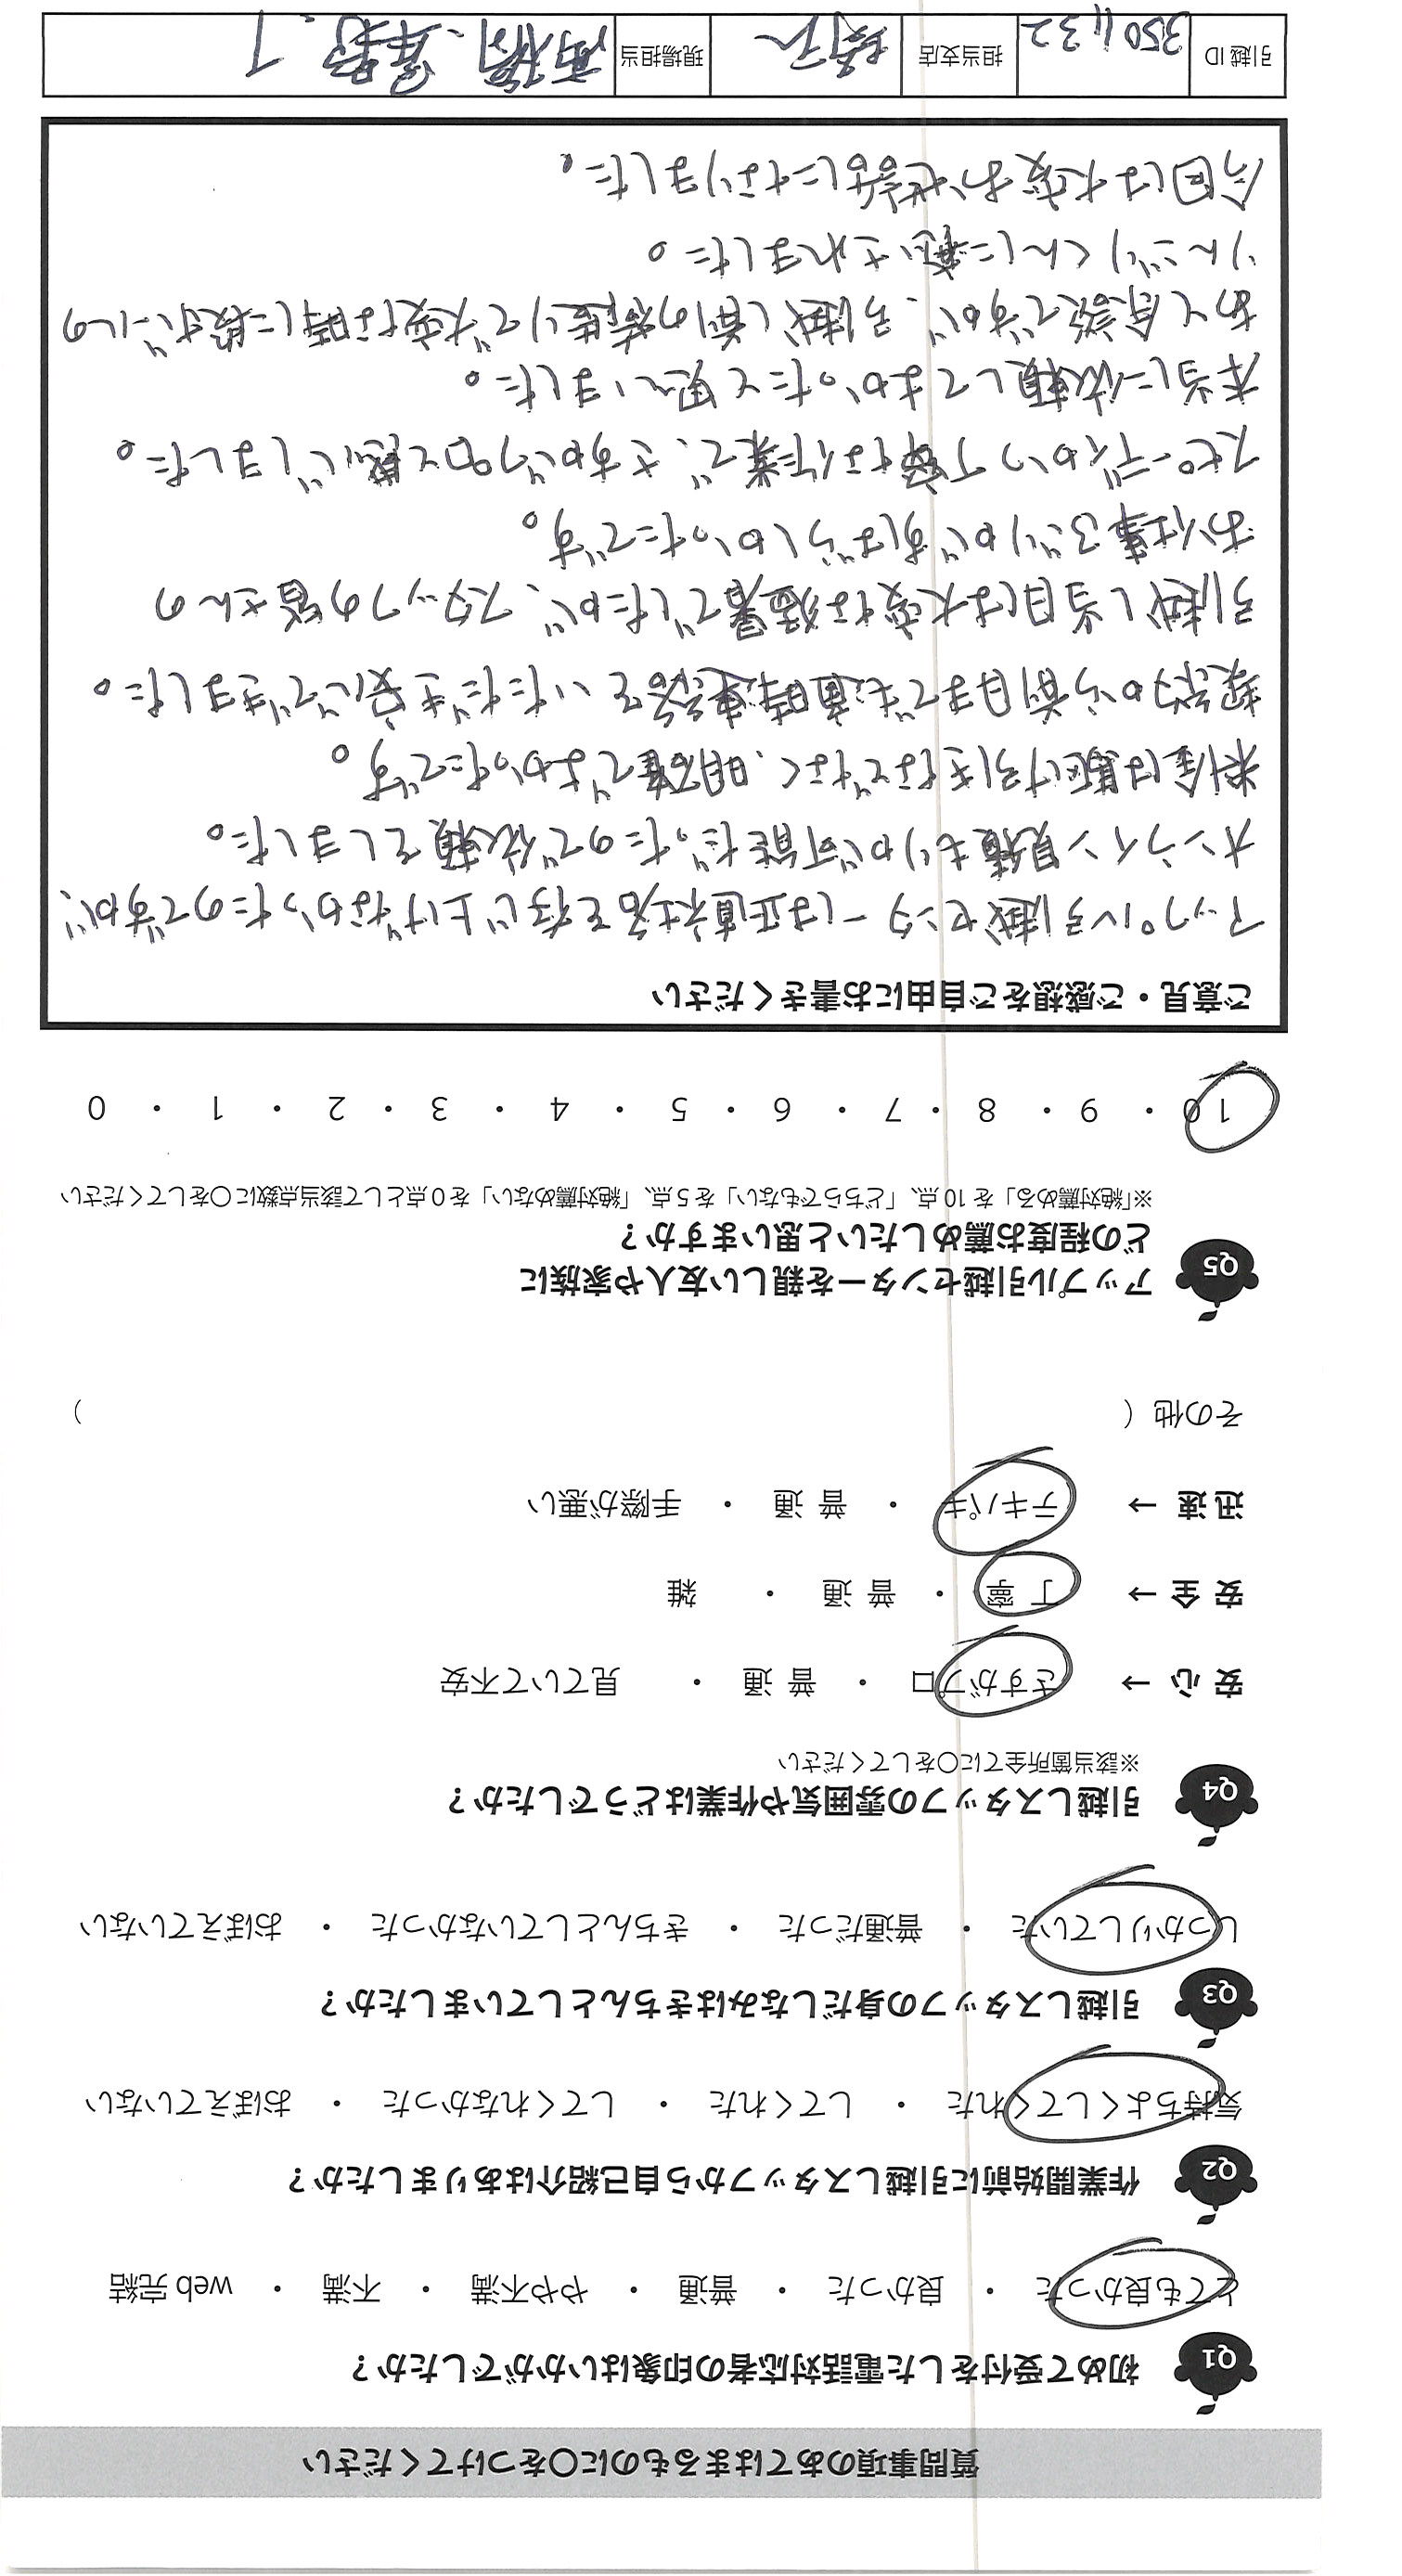 質問事項のあてはまるものに〇をつけてください
Q1 初めて受付をした電話対応者の印象はいかがでしたか？
とても良かった ・ 良かった ・ 普通 ・ やや不満 ・ 不満 ・ web 完結
Q2 作業開始前に引越しスタッフから自己紹介はありましたか？
気持ちよくしてくれた ・ してくれた ・ してくれなかった ・ おぼえていない
Q3 引越しスタッフの身だしなみはきちんとしていましたか？
しっかりしていた ・ 普通だった ・ きちんとしていなかった ・ おぼえていない
Q4 引越しスタッフの雰囲気や作業はどうでしたか？
※該当箇所全てに〇をしてください
安 心 → さすがプロ ・ 普 通 ・ 見ていて不安
安 全 → 丁 寧 ・ 普 通 ・ 雑
迅 速 → テキパキ ・ 普 通 ・ 手際が悪い
その他（ ）
Q5 アップル引越センターを親しい友人や家族に
どの程度お薦めしたいと思いますか？
※「絶対薦める」を 10 点、「どちらでもない」を 5 点、「絶対薦めない」を 0 点として該当点数に〇をしてください
10 ・ 9 ・ 8 ・ 7 ・ 6 ・ 5 ・ 4 ・ 3 ・ 2 ・ 1 ・ 0
ご意見・ご感想をご自由にお書きください
アップル引越センターは正直社名を存じ上げなかったのですが、
オンライン見積もりが可能だったので依頼をしました。
料金は駆け引きなどなく、明確でよかったです。
契約から前日までも適時連絡をいただき安心できました。
引越し当日は大変な猛暑でしたが、スタッフの皆さんの
お仕事ぶりがすばらしかったです。
スピーディかつ丁寧な作業で、さすがプロと感じました。
本当に依頼してよかったと思いました。
あと余談ですが、引越し前の荷造りで大変な時に段ボールの
りんごりくんに癒されました。
今回は大変お世話になりました。
引越 ID 3501132 担当支店 埼玉 現場担当 高橋、